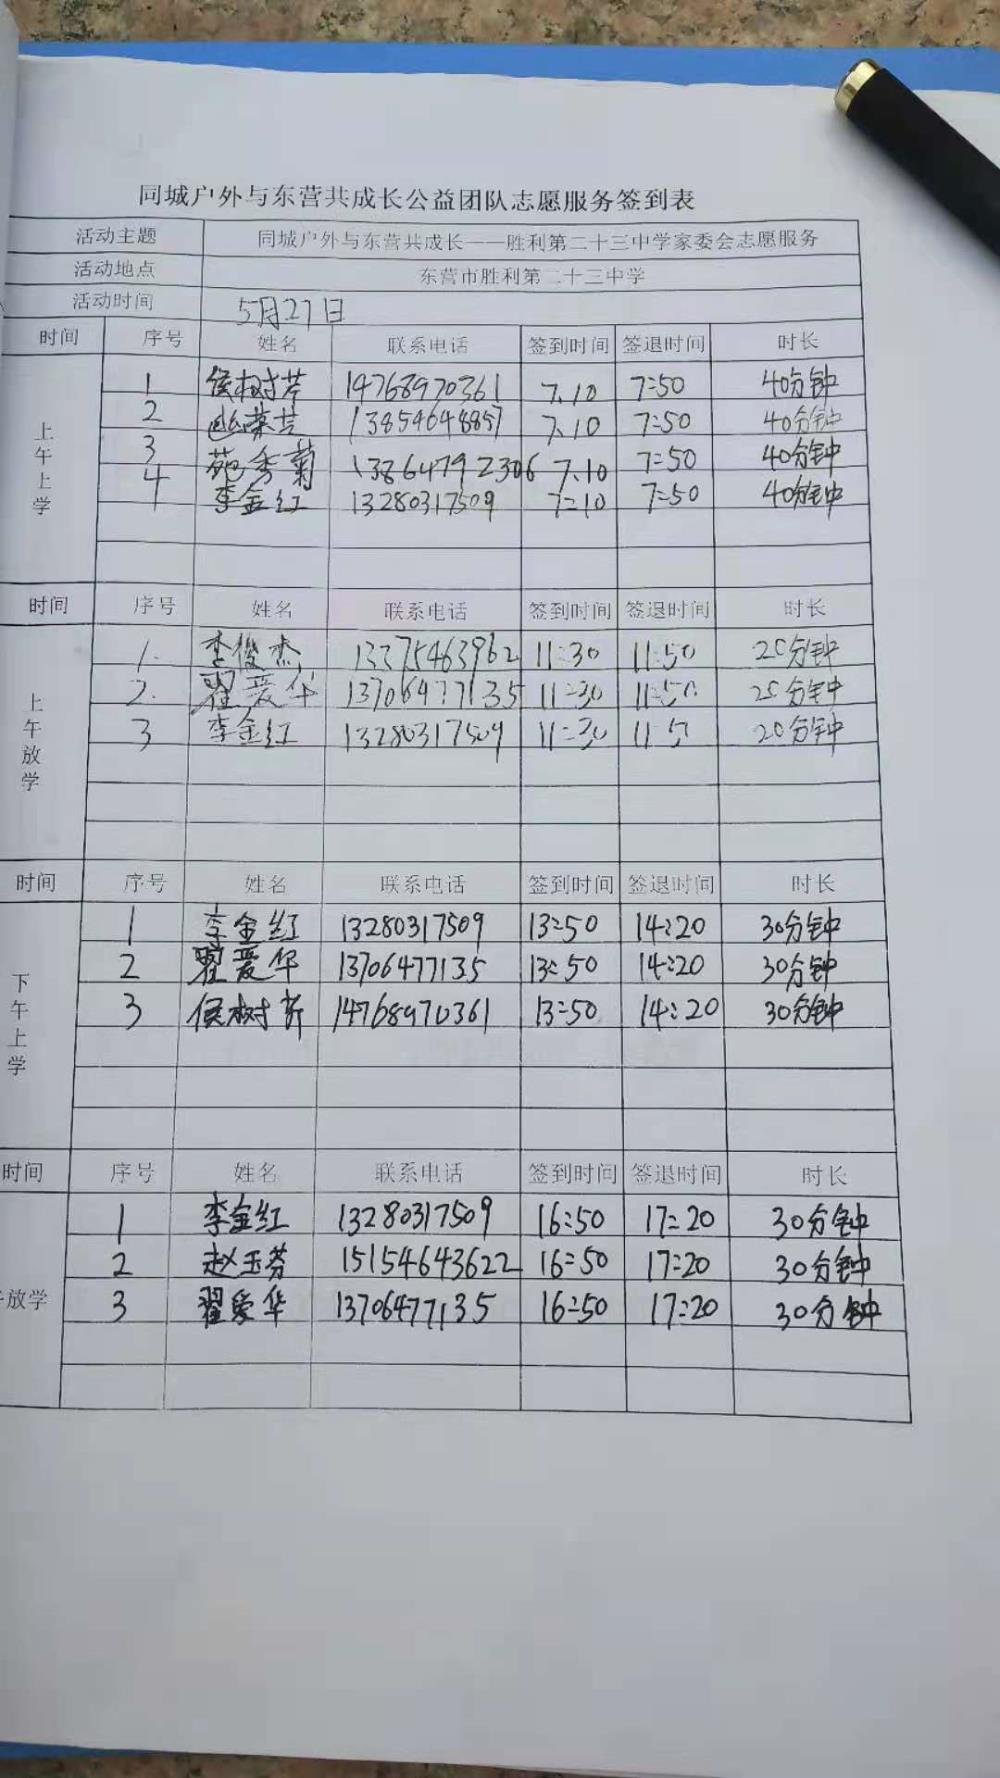 同城户外与东营共成长公益团队志愿服务签到表
活动主题 同城户外与东营共成长——胜利第二十三中学家委会志愿服务
活动地点 东营市胜利第二十三中学
活动时间 5月27日
时间 序号 姓名 联系电话 签到时间 签退时间 时长
上午上学
1 侯树芹 14768970361 7.10 7:50 40分钟
2 荣芸 13854648857 7.10 7:50 40分钟
3 苑秀菊 13864792306 7.10 7:50 40分钟
4 李金红 13280317509 7:10 7:50 40分钟
时间 序号 姓名 联系电话 签到时间 签退时间 时长
上午放学
1. 李俊杰 13375463962 11:30 11:50 20分钟
2. 翟爱华 13706477135 11:30 11:50 20分钟
3 李金红 13280317509 11:30 11:5 20分钟
时间 序号 姓名 联系电话 签到时间 签退时间 时长
下午上学
1 李金红 13280317509 13:50 14:20 30分钟
2 翟爱华 13706477135 13:50 14:20 30分钟
3 侯树芹 14768970361 13:50 14:20 30分钟
时间 序号 姓名 联系电话 签到时间 签退时间 时长
放学
1 李金红 13280317509 16:50 17:20 30分钟
2 赵玉芬 15154643622 16:50 17:20 30分钟
3 翟爱华 13706477135 16:50 17:20 30分钟